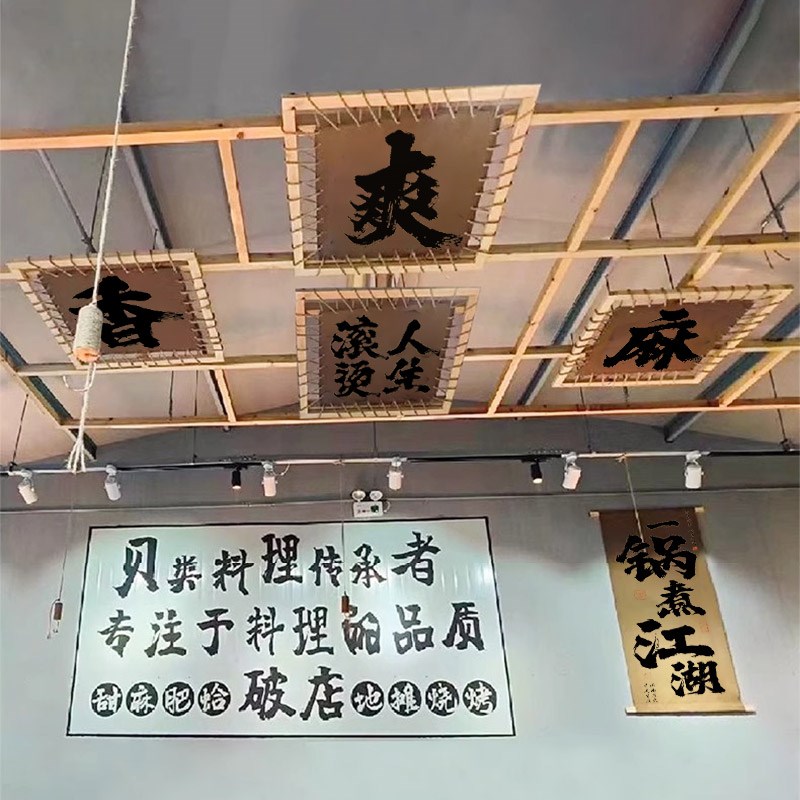 爽
香
人生
滚烫
麻
贝类料理传承者
专注于料理的品质
甜麻肥蛤破店地摊烧烤
一锅煮江湖